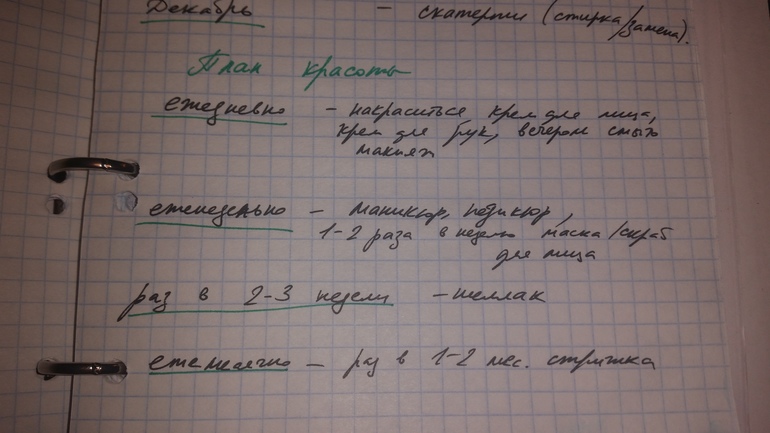 Декабрь - скатерти (стирка/замена).
План красоты
ежедневно - накраситься крем для лица,
крем для рук, вечером смыть
макияж
еженедельно - маникюр, педикюр,
1-2 раза в неделю маска/скраб
для лица
раз в 2-3 недели - шеллак
ежемесячно - раз в 1-2 мес. стрижка